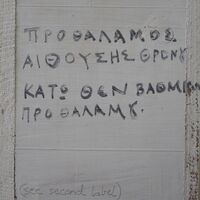 ΠΡΟΘΑΛΑΜΟΣ
ΑΙΘΟΥΣΗΣ ΘΡΟΝΥ
ΚΑΤΩΘΕΝ ΒΑΘΜΙΔ
ΠΡΟΘΑΛΑΜΥ.
(see second label)